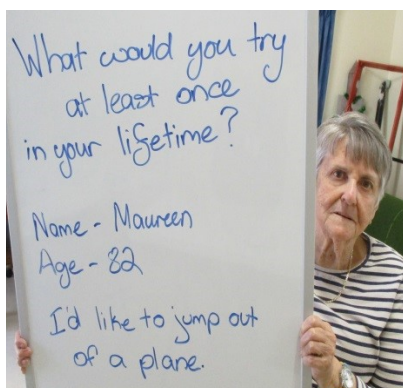 What would you try
at least once
in your lifetime?
Name - Maureen
Age - 82
I'd like to jump out
of a plane.